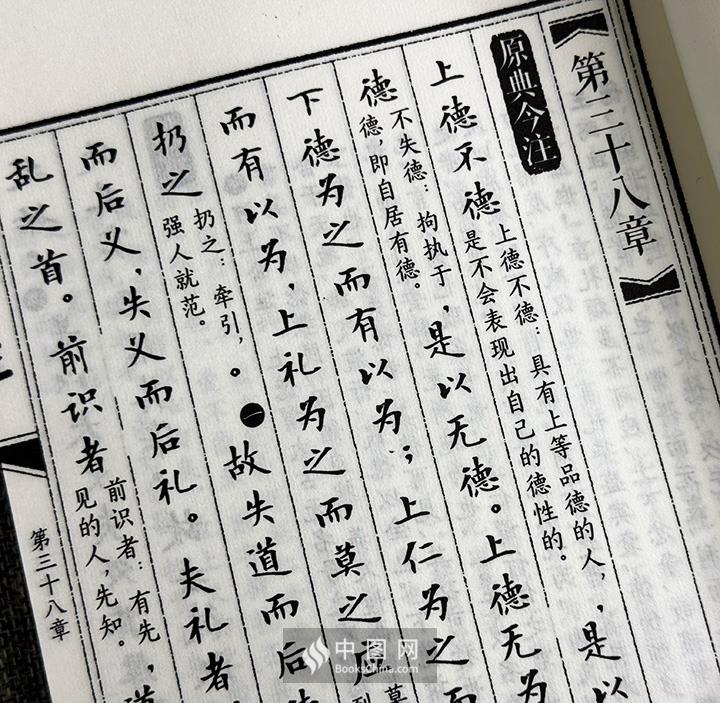 第三十八章
原典今注
上德不德
上德不德：具有上等品德的人，
是不会表现出自己的德性的。
，是以
德
不失德：拘执于
德，即自居有德。
，是以无德。上德无为
下德为之而有以为；上仁为之而
而有以为，上礼为之而莫之
扔之
扔之：牵引，
强人就范。
。㊀故失道而后
而后义，失义而后礼。夫礼者
乱之首。前识者
前识者：有先
见的人，先知。
，
第三十八章
中图网
BooksChina.com